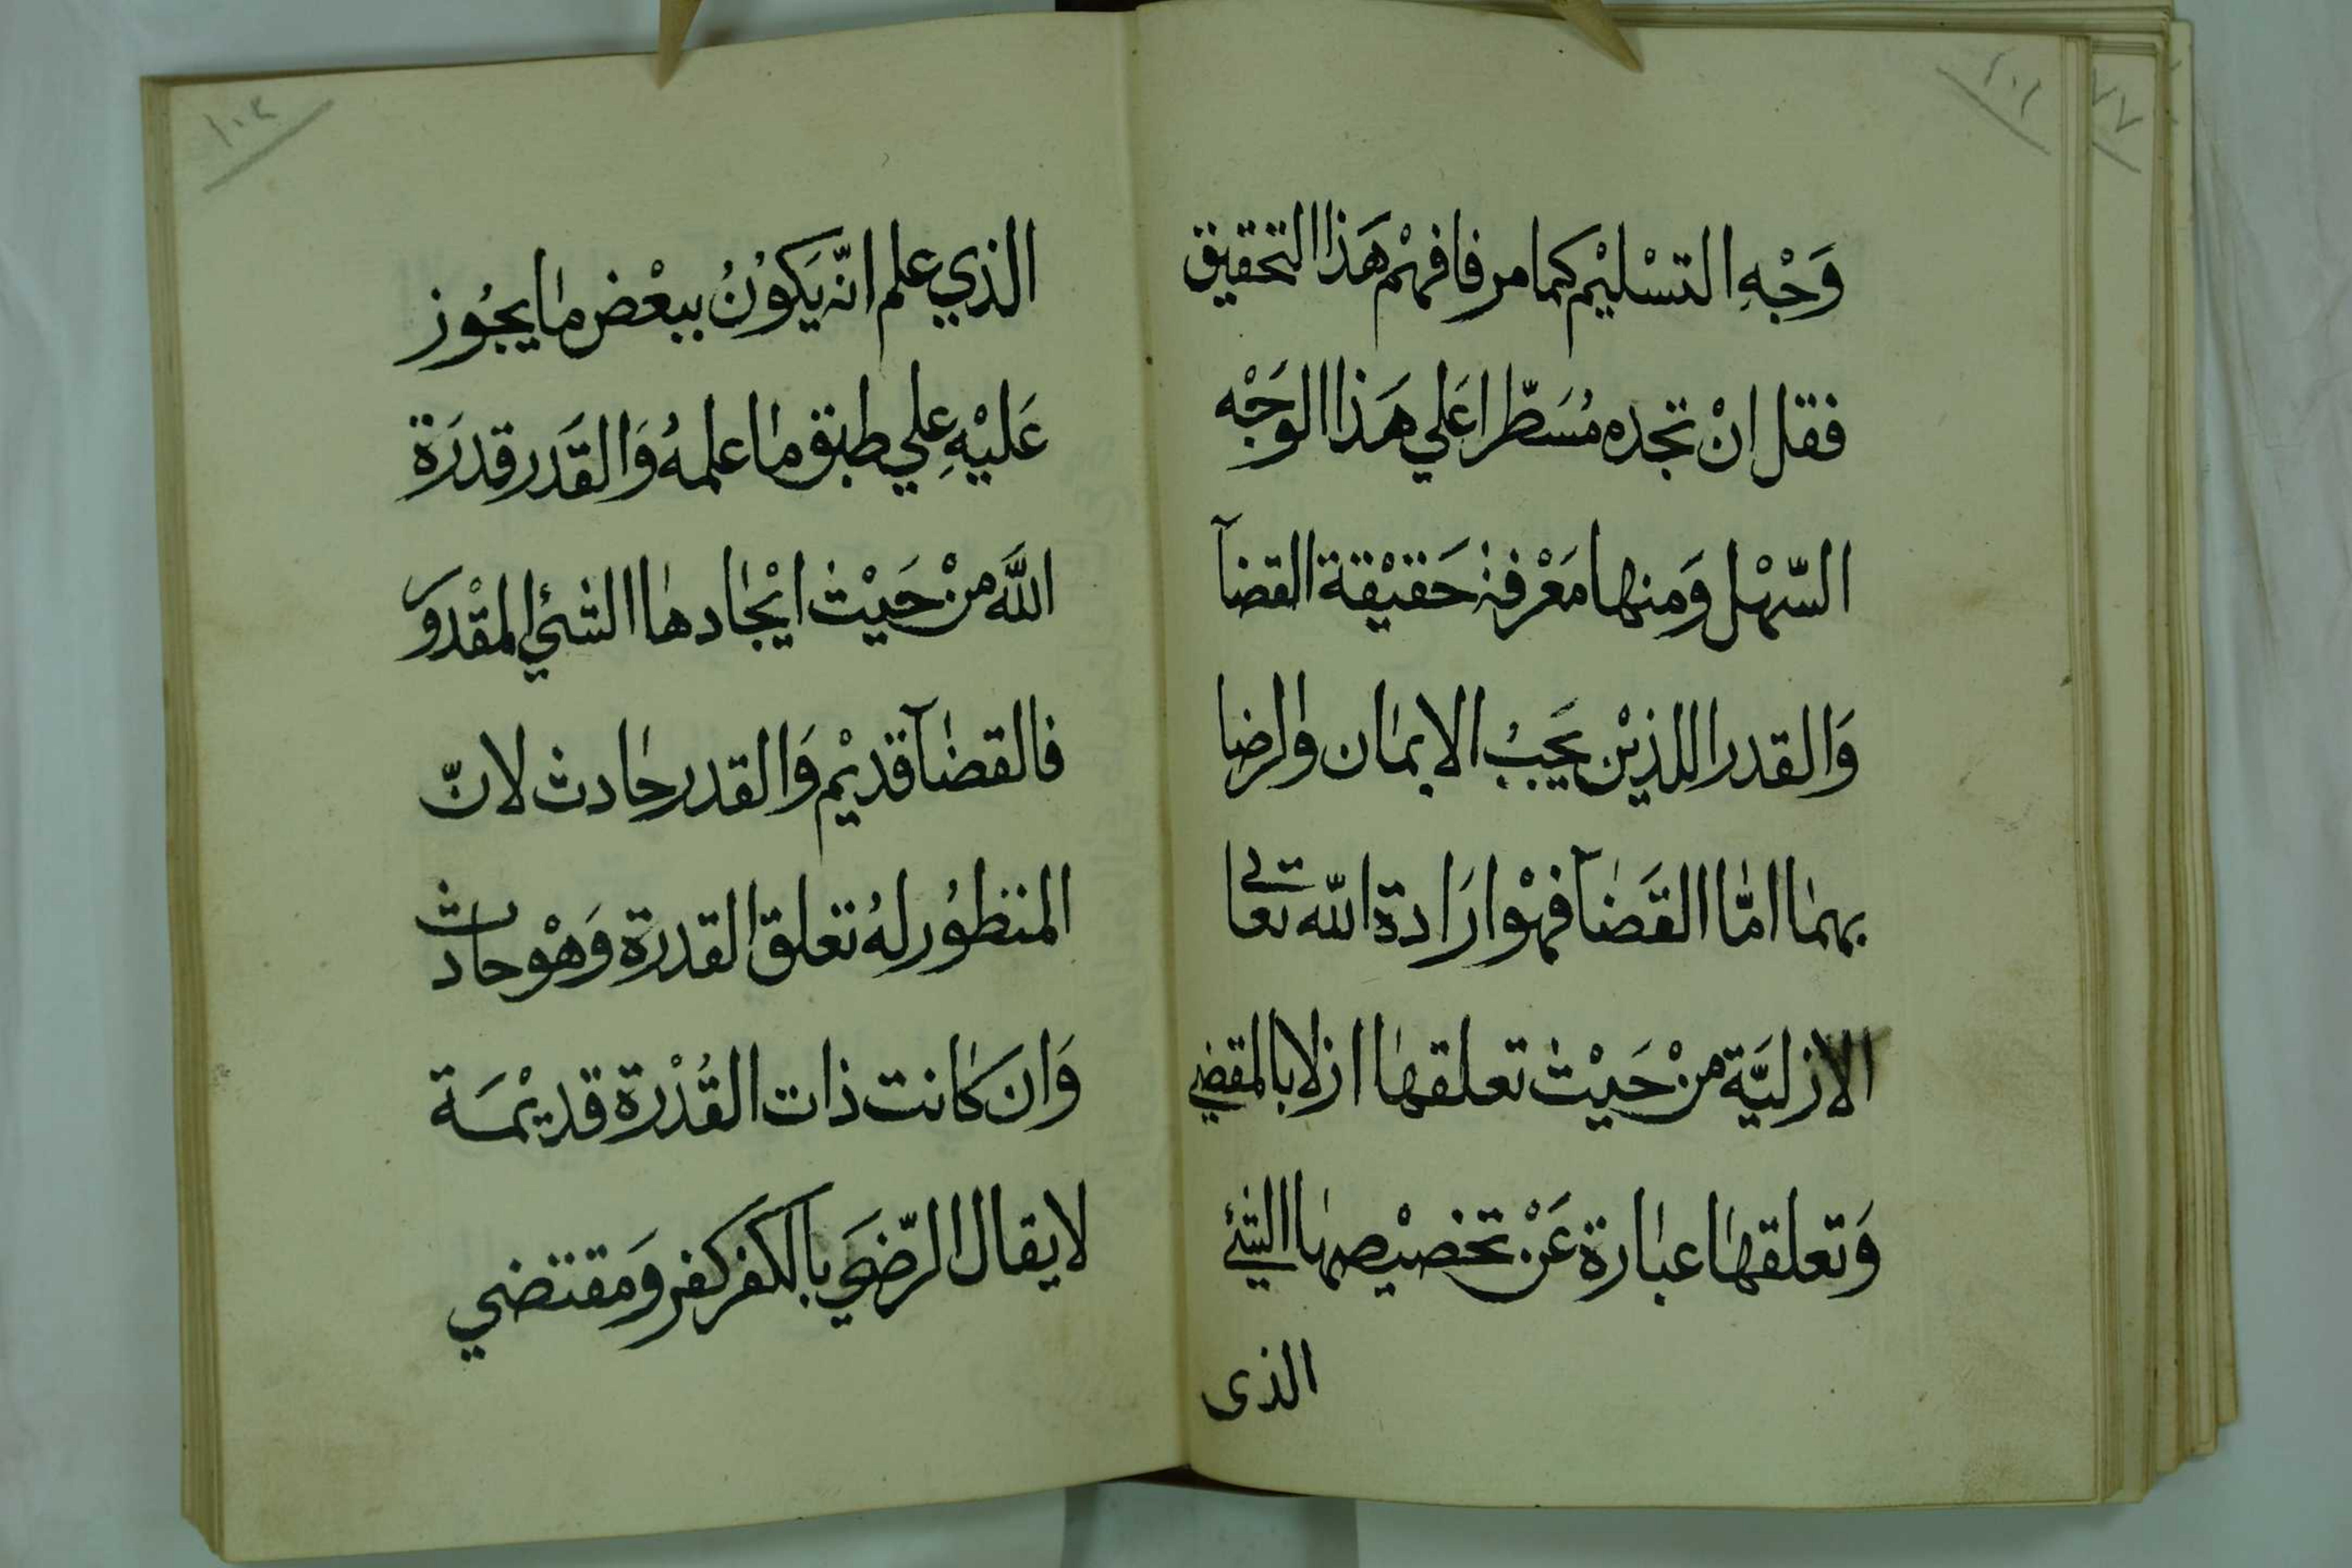 ١٠٢
وَجْهِ التسْليْم كما مر فافهمْ هَذا التحقيق
فقل انْ تجده مُسَطّرا عَلي هَذا الوَجْه
السّهْل وَمنها مَعْرفة حَقيْقة القضآ
وَالقدر اللذيْن يَجبُ الايمان والرضا
بهما امّا القَضآ فهْو ارَادة الله تعالي
الازليَّة منْ حَيْث تعلقها ازلا بالمقضي
وَتعلقها عبارة عَنْ تخصيْصها الشئ
الذى
١٠٣
الذي علم انّه يَكوُنُ ببعْض ما يجُوز
عَليْهِ علي طبق ما علمهُ وَالقَدَر قدرَة
اللَّه منْ حَيْث ايْجادها الشئ المقْدوَر
فالقضآ قديْم وَالقدر حادث لانّ
المنظوُر لهُ تعلق القدرة وَهْو حادث
وَان كانت ذات القُدْرة قديْمَة
لا يقال الرّضَي بالكفر كفر وَمقتضي